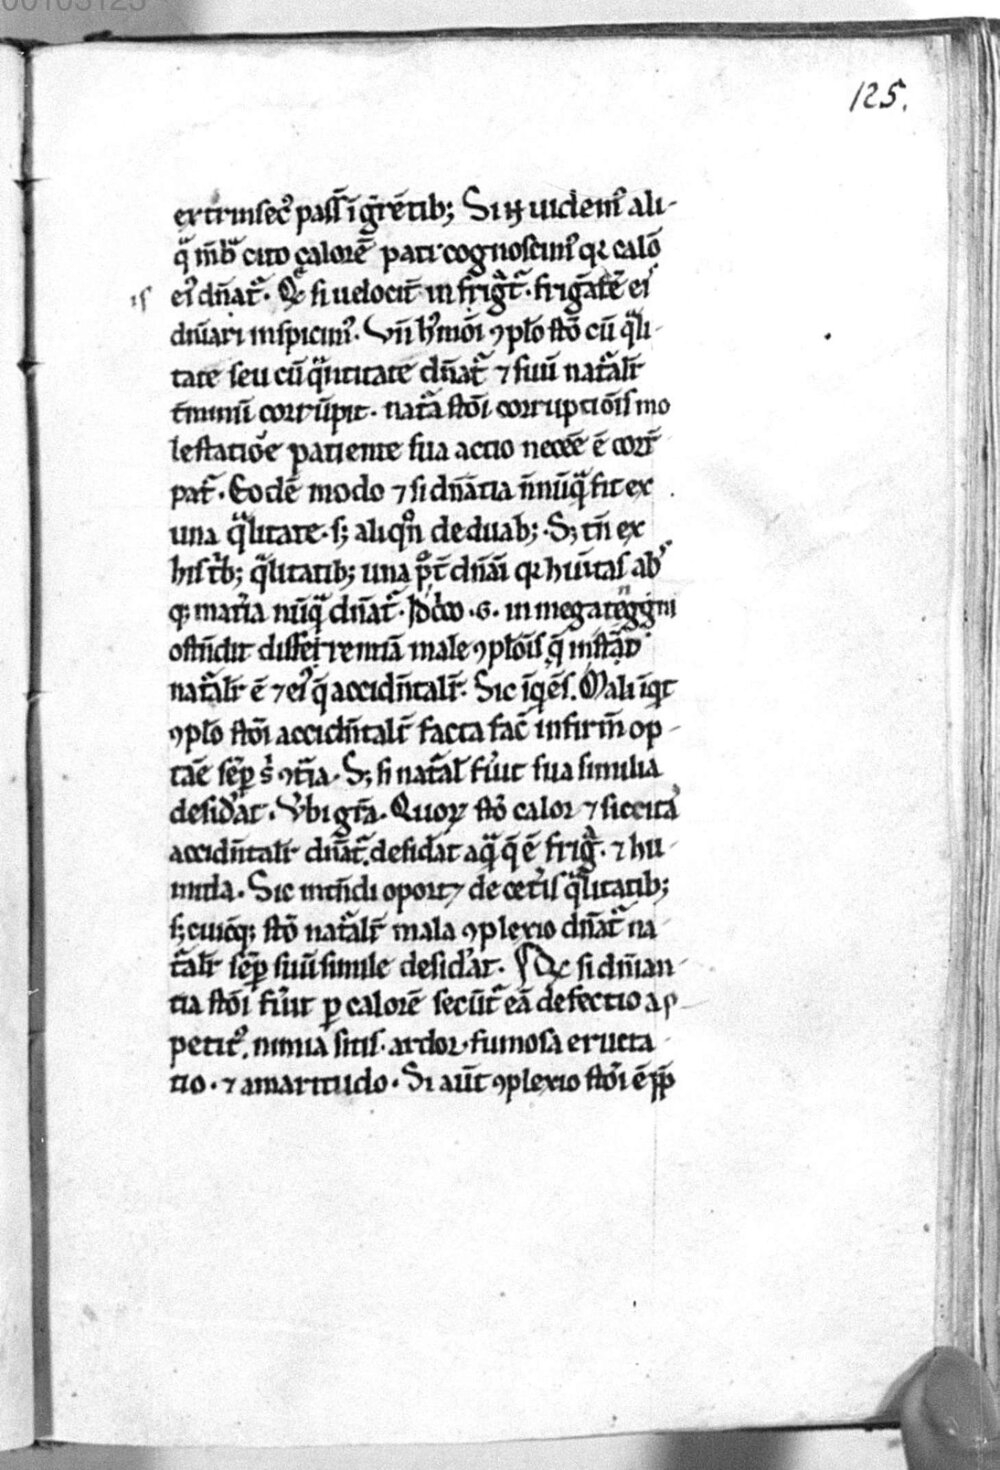 00103123
125.
extrinsec᷒ pass̄ īg̃rētib; Si ħ uidem᷒ ali-
q̃ m̄b̃ cito calorē pati cognoscim᷒ qr calō
is
ei᷒ dn̄at᷑. Qd̕ si uelocit᷑ infrig̃t᷑. frig̃atē ei᷒
dn̄ari inspicim᷒. Vn̄ h᷒mōi ꝯplō stō cū q̃li-
tate seu cū q̃ntitate dn̄at᷑ ⁊ suū nat᷑alr̄
t᷑minū corrūpit. nat᷑a stōi corruptiōis mo
lestatiōe patiente sua actio necēe ē corr̄
pat᷑. Eodē modo ⁊ si dn̄atia n̄nūq̃ fit ex
una q̃litate. s; aliqn̄ de duab;. S; tn̄ ex
his t᷑b; q̃litatib; una pōt᷑ dn̄ari qr hūitas ab
qꝫ mat᷑ia nūq̃ dn̄at᷑. .G. in megategg̃ni
ostn̄dit differrentiā male ꝯplōis q̃
nat᷑alr̄ ē ⁊ ei᷒ q̃ accidn̄talr̄. Sic īqēs. Mali īqt
ꝯplō stōi accidn̄talr̄ facta fac̄ infirm̄ op-
tāe sēp s̄ ꝯt᷑ia. S; si nat᷑al᷑ fu᷑it sua similia
desid᷑at. V᷑bi gr̄a. Quoꝝ stō calor ⁊ siccita᷒
accidn̄talr̄ dn̄at᷑. desid᷑at aq̃ q̃ ē frig̃. ⁊ hu-
mida. Sic intn̄di oport⁊ de cet᷑is q̃litatib;
s; cuicūqꝫ stō nat᷑alr̄ mala ꝯplexio dn̄at᷑ na
t᷑alr̄ sēp suū simile desid᷑at. Qd̕ si dn̄ian-
tia stōi fu᷑it p calorē secūt᷑ eā defectio ap-
petit᷒. nimia sitis. ardor. fumosa eructa-
tio. ⁊ amaritudo. Si aūt ꝯplexio stōi ē pp